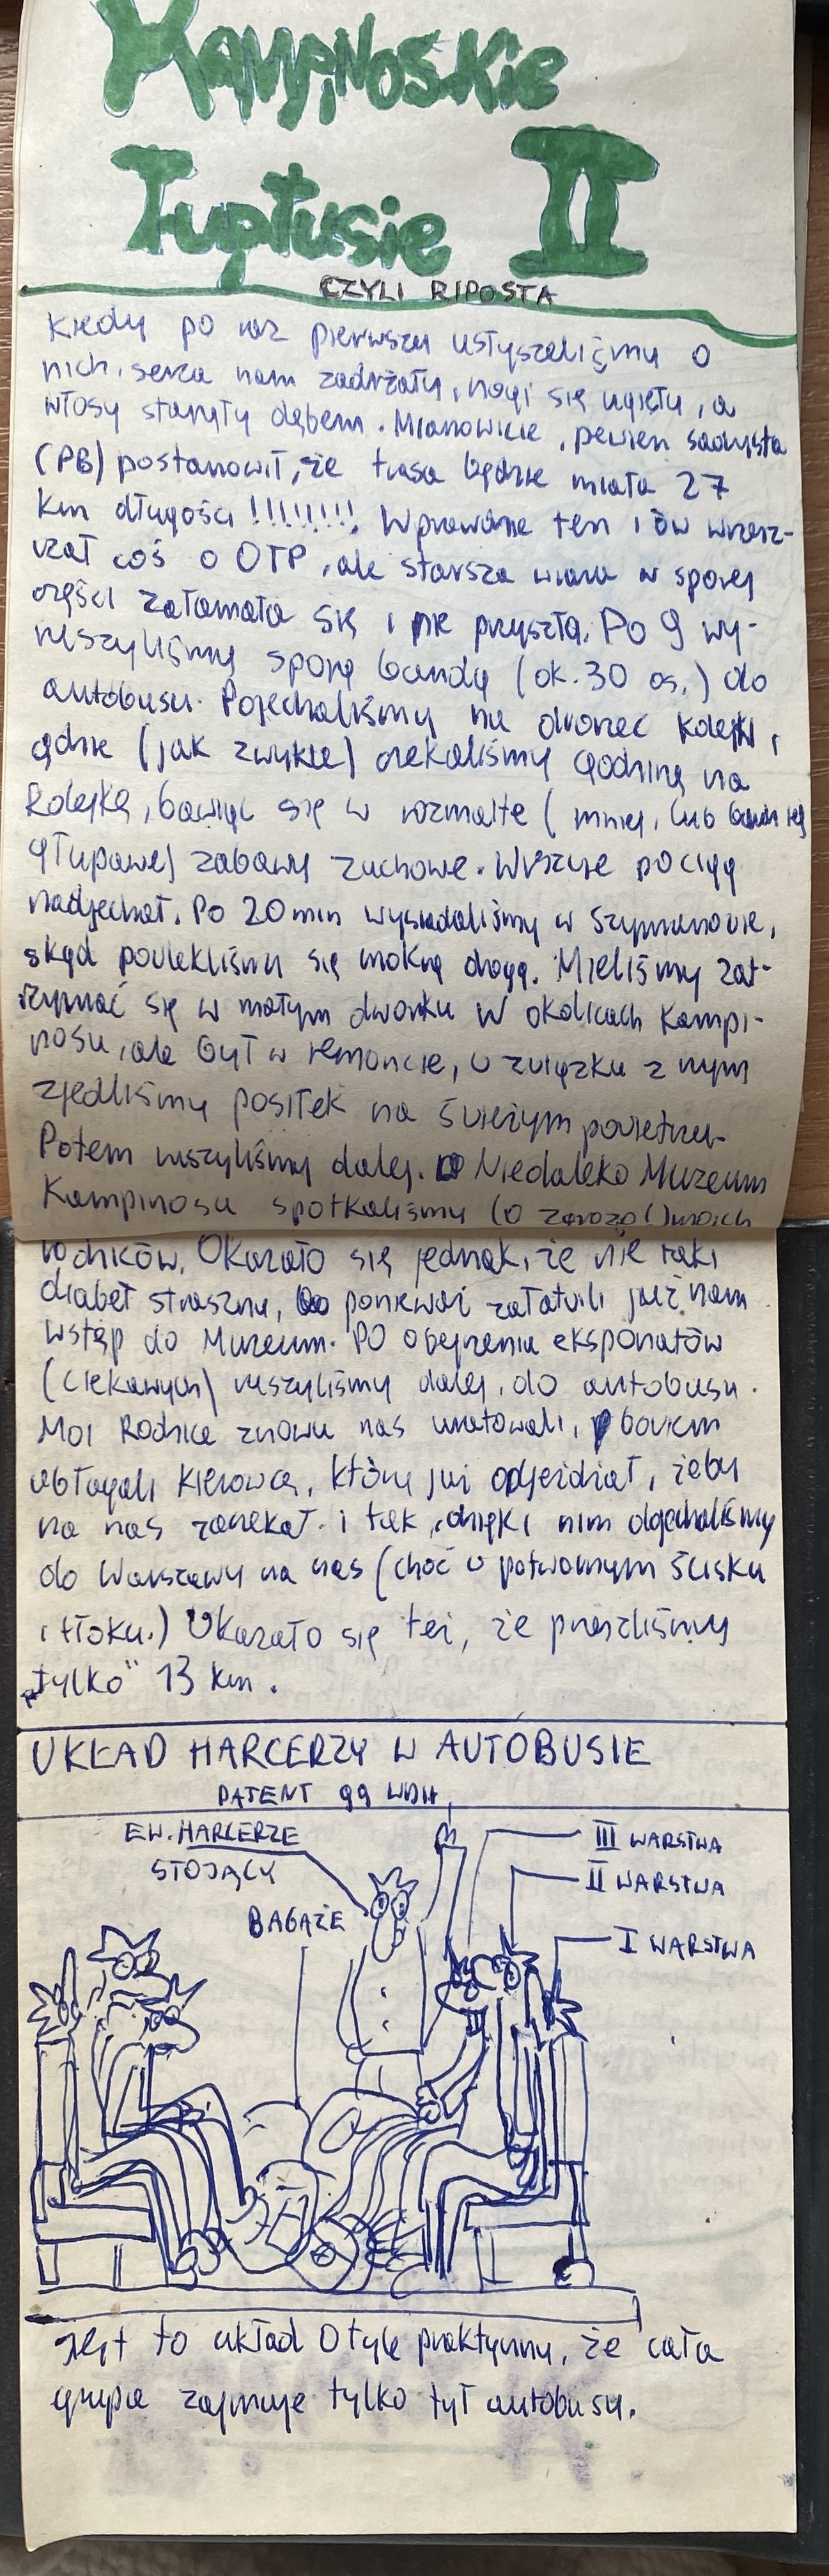 Kampinoskie
Tuptusie II
CZYLI RIPOSTA
Kiedy po raz pierwszy usłyszeliśmy o
nich, serca nam zadrżały, nogi się ugięły, a
włosy stanęły dębem. Mianowicie, pewien sadysta
(PB) postanowił, że trasa będzie miała 27
km długości !!!!!!!!. Wprawdzie ten i ów wrzesz-
czał coś o OTP, ale starsza wiara w sporej
części załamała się i nie przyszła. Po 9 wy-
ruszyliśmy sporą bandą (ok. 30 os.) do
autobusu. Pojechaliśmy na dworzec kolejki,
gdzie (jak zwykle) czekaliśmy godzinę na
kolejkę, bawiąc się w rozmaite (mniej, lub bardziej
głupawe) zabawy zuchowe. Wreszcie pociąg
nadjechał. Po 20 min wysiadaliśmy w Szymanowie,
skąd powlekliśmy się mokrą drogą. Mieliśmy zat-
rzymać się w małym dworku w okolicach Kampi-
nosu, ale był w remoncie, w związku z czym
zjedliśmy posiłek na świeżym powietrzu.
Potem ruszyliśmy dalej. Niedaleko Muzeum
Kampinosu spotkaliśmy (o zgrozo!) moich
rodziców. Okazało się jednak, że nie taki
diabeł straszny, ponieważ załatwili już nam
wstęp do Muzeum. PO obejrzeniu eksponatów
(ciekawych) ruszyliśmy dalej, do autobusu.
Moi Rodzice znowu nas uratowali, bowiem
ubłagali kierowcę, który już odjeżdżał, żeby
na nas zaczekał. i tak, dzięki nim dojechaliśmy
do Warszawy na czas (choć w potwornym ścisku
i tłoku.) Okazało się też, że przeszliśmy
„tylko" 13 km.
UKŁAD HARCERZY W AUTOBUSIE
PATENT 99 WDH
EW. HARCERZE
STOJĄCY
BAGAŻE
III WARSTWA
II WARSTWA
I WARSTWA
Jest to układ O tyle praktyczny, że cała
grupa zajmuje tylko tył autobusu.